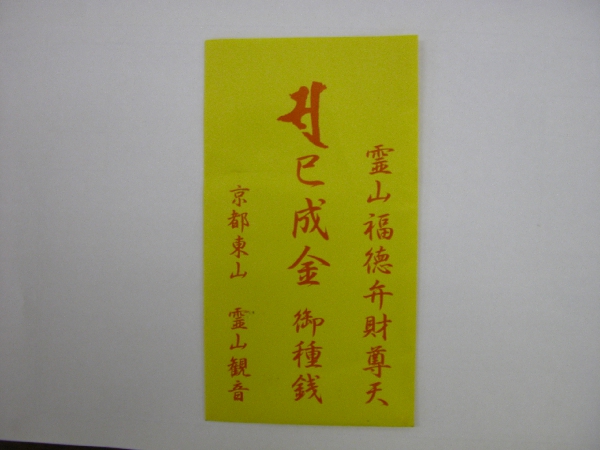 霊山福徳弁財尊天
巳成金 御種銭
京都東山 霊山観音